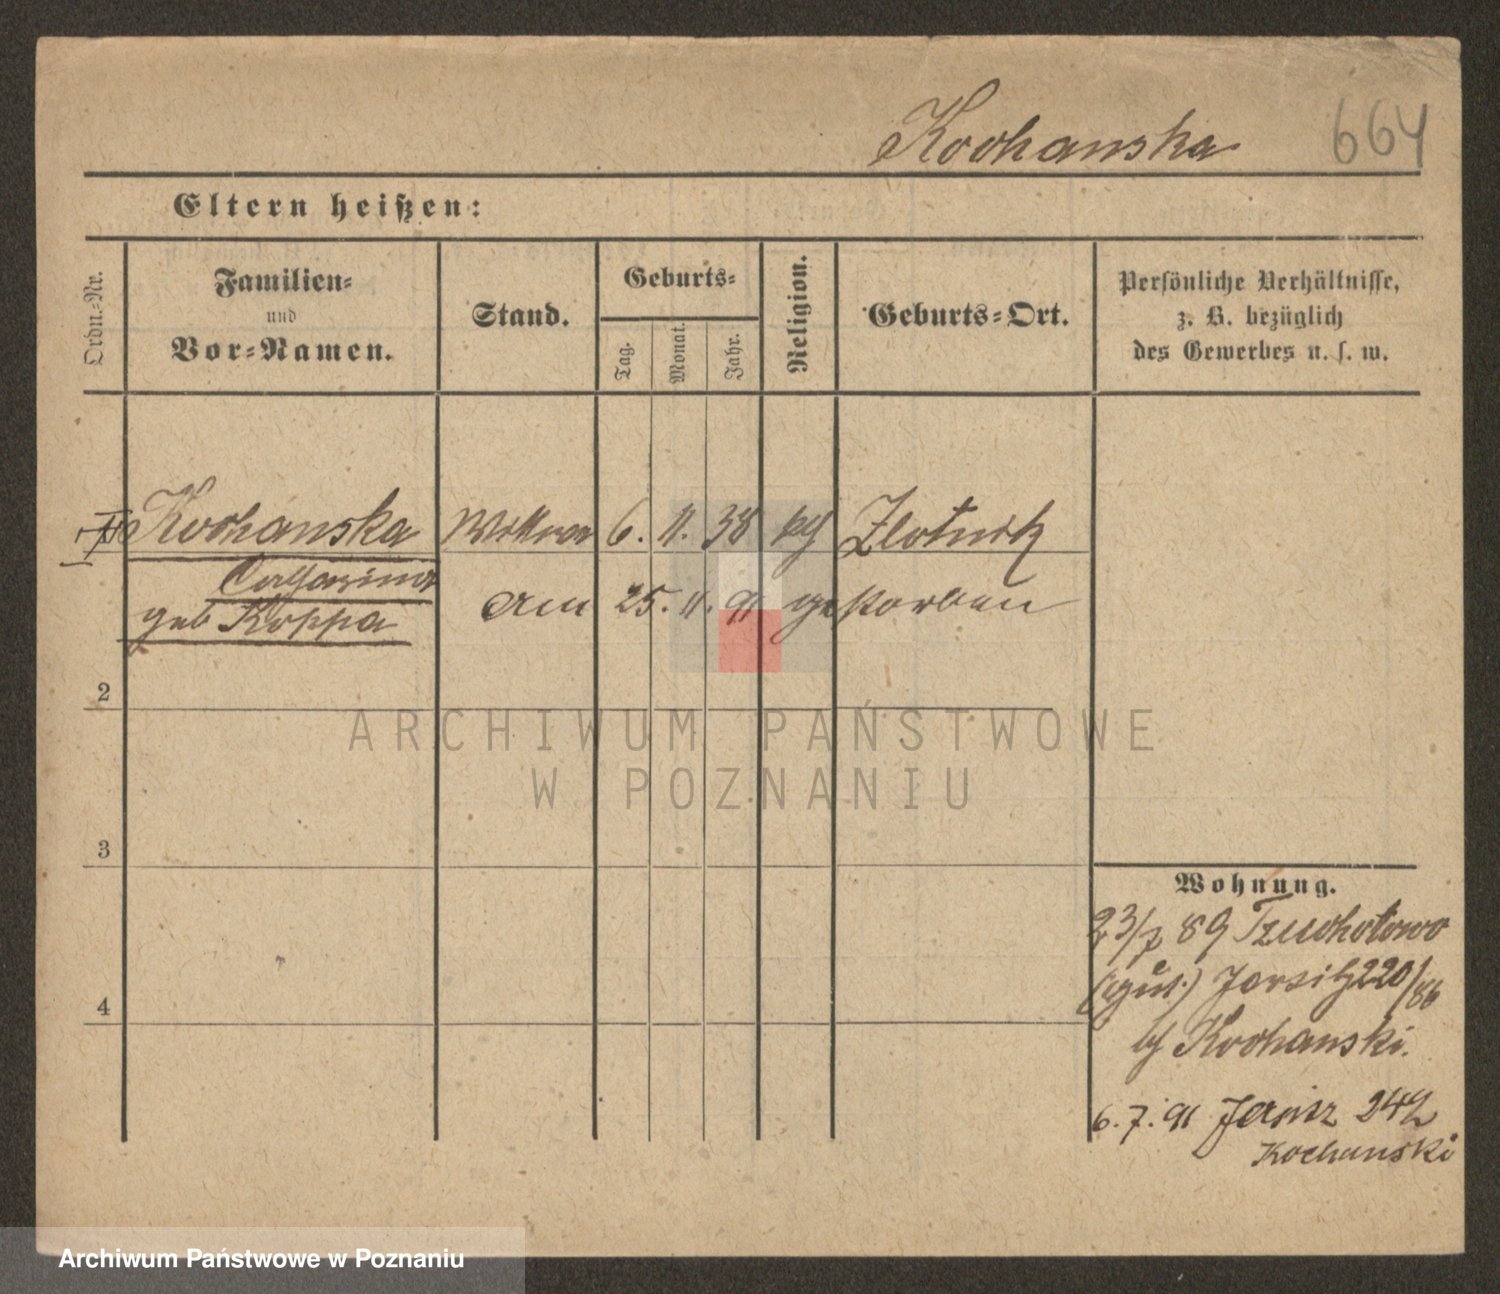 Kochanska 664
Eltern heißen:
Ordn.-Nr.
Familien-
und
Vor-Namen.
Stand.
Geburts-
Tag.
Monat.
Jahr.
Religion.
Geburts-Ort.
Persönliche Verhältnisse,
z. B. bezüglich
des Gewerbes u. s. w.
Kochanska 6. 11. 38 Zlotnik
Catharina
geb Koppa am 25. 11. 91 gestorben
2
3
4
Wohnung.
23/7 89
Jersitz 220/86
b/ Kochanski.
6. 7. 91 Jersitz 242
Kochanski
ARCHIWUM PAŃSTWOWE
W POZNANIU
Archiwum Państwowe w Poznaniu